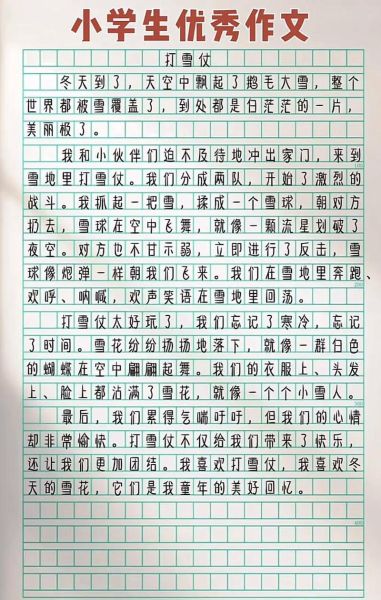 小学生优秀作文
打雪仗
冬天到了，天空中飘起了鹅毛大雪，整个
世界都被雪覆盖了，到处都是白茫茫的一片，
美丽极了。
我和小伙伴们迫不及待地冲出家门，来到
雪地里打雪仗。我们分成两队，开始了激烈的
战斗。我抓起一把雪，揉成一个雪球，朝对方
扔去，雪球在空中飞舞，就像一颗流星划破了
夜空。对方也不甘示弱，立即进行了反击，雪
球像炮弹一样朝我们飞来。我们在雪地里奔跑、
欢呼、呐喊，欢声笑语在雪地里回荡。
打雪仗太好玩了，我们忘记了寒冷，忘记
了时间。雪花纷纷扬扬地落下，就像一群白色
的蝴蝶在空中翩翩起舞。我们的衣服上、头发
上、脸上都沾满了雪花，就像一个个小雪人。
最后，我们累得气喘吁吁，但我们的心情
却非常愉快。打雪仗不仅给我们带来了快乐，
还让我们更加团结。我喜欢打雪仗，我喜欢冬
天的雪花，它们是我童年的美好回忆。